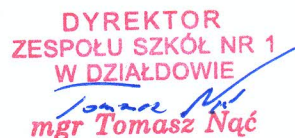 DYREKTOR
ZESPOŁU SZKÓŁ NR 1
W DZIAŁDOWIE
Tomasz Nać
mgr Tomasz Nać